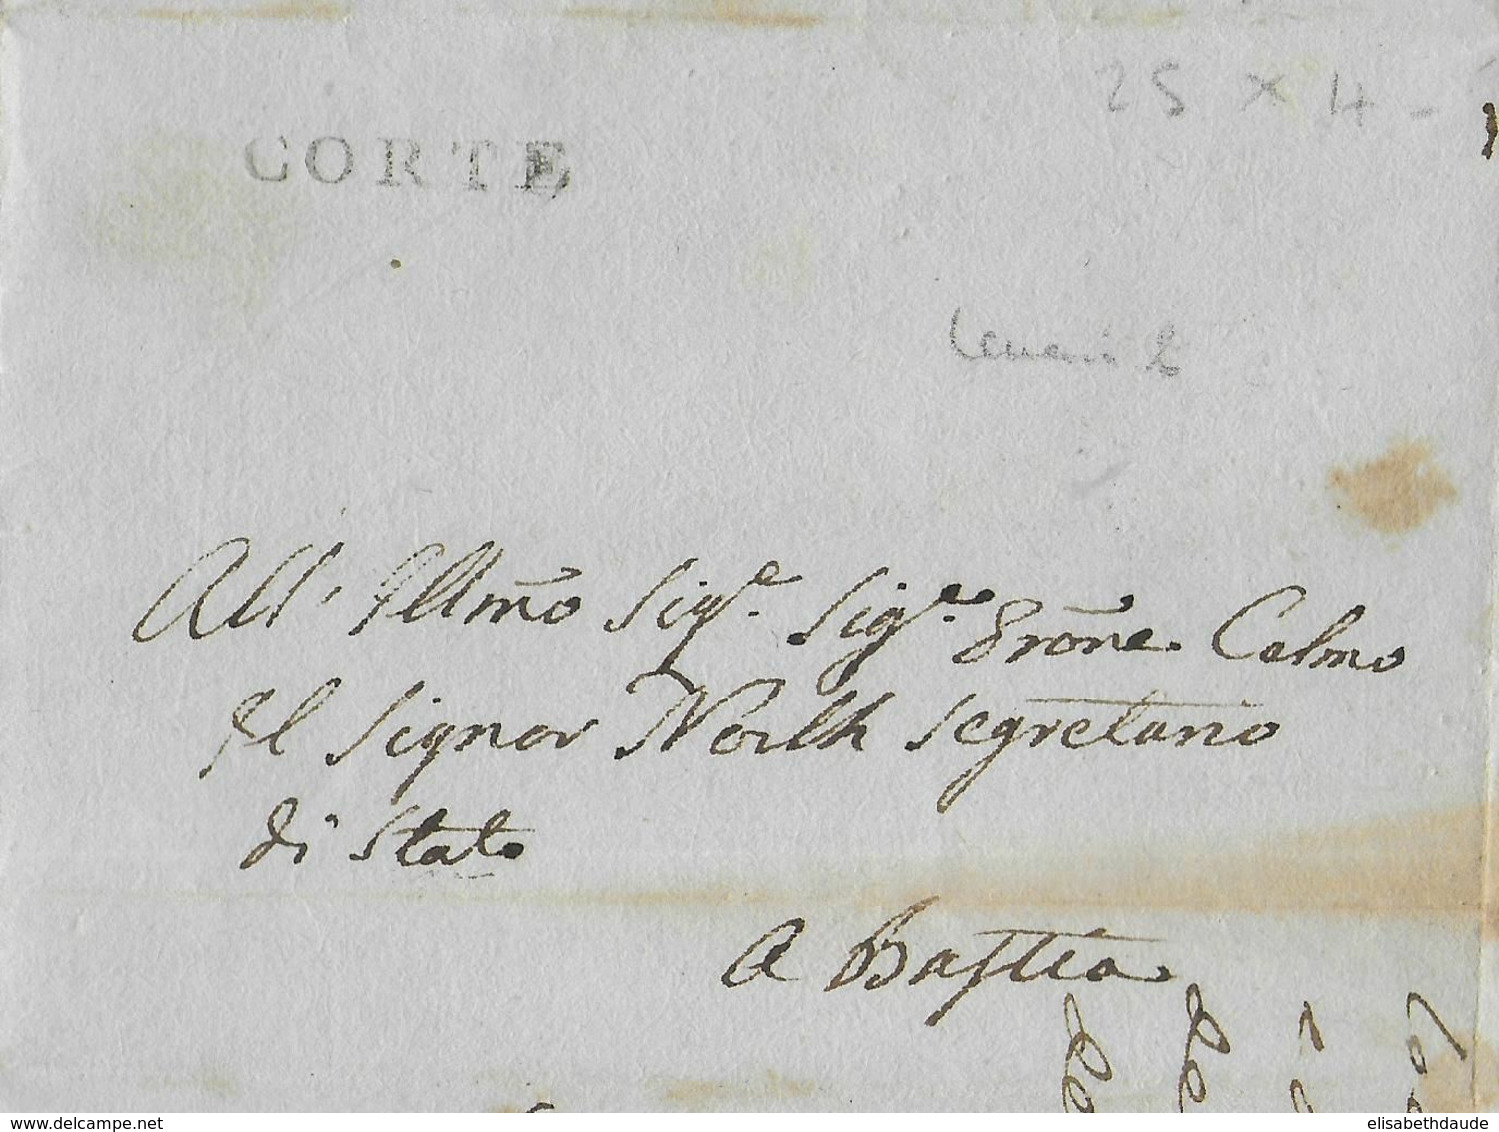 25 x 4 -
CORTE
All' Illmo Sigre. Sigre. Prone. Colmo
Il Signor North Segretario
di Stato
A Bastia.
delcampe.net
elisabethdaude